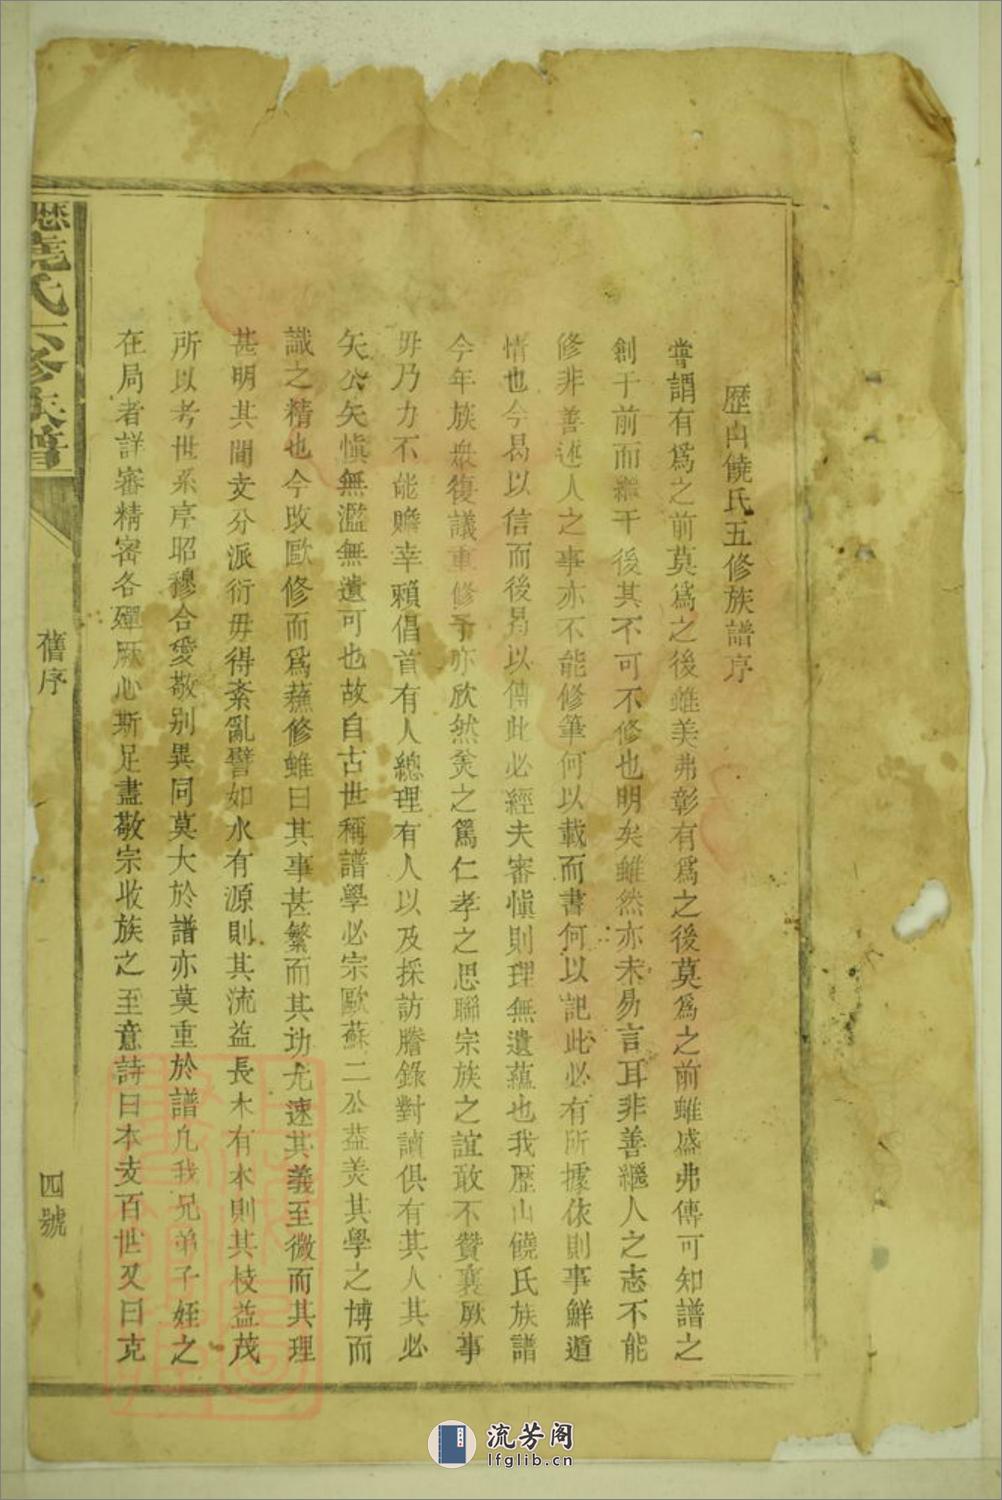 歷山饒氏五修族譜序
嘗謂有爲之前莫爲之後雖美弗彰有爲之後莫爲之前雖盛弗傳可知譜之
創于前而繼于後其不可不修也明矣雖然亦未易言耳非善繼人之志不能
修非善述人之事亦不能修筆何以載而書何以記此必有所據依則事鮮遁
情也今曷以信而後曷以傳此必經夫審愼則理無遺蘊也我歷山饒氏族譜
今年族衆復議重修予亦欣然羙之爲仁孝之思聯宗族之誼敢不贊襄厥事
毋乃力不能贍幸賴倡首有人總理有人以及採訪謄錄對讀俱有其人其必
矢公矢愼無濫無遺可也故自古世稱譜學必宗歐蘇二公葢羙其學之博而
識之精也今改歐修而爲蘇修雖曰其事甚繁而其功尤速其義至微而其理
甚明其間支分派衍毋得紊亂譬如水有源則其流益長木有本則其枝益茂
所以考世系序昭穆合愛敬别異同莫大於譜亦莫重於譜凡我兄弟子姪之
在局者詳審精密各殫厥心斯足盡敬宗收族之至意詩曰本支百世又曰克
歷饒氏六修族譜
舊序
四號
流芳阁
lfglib.cn